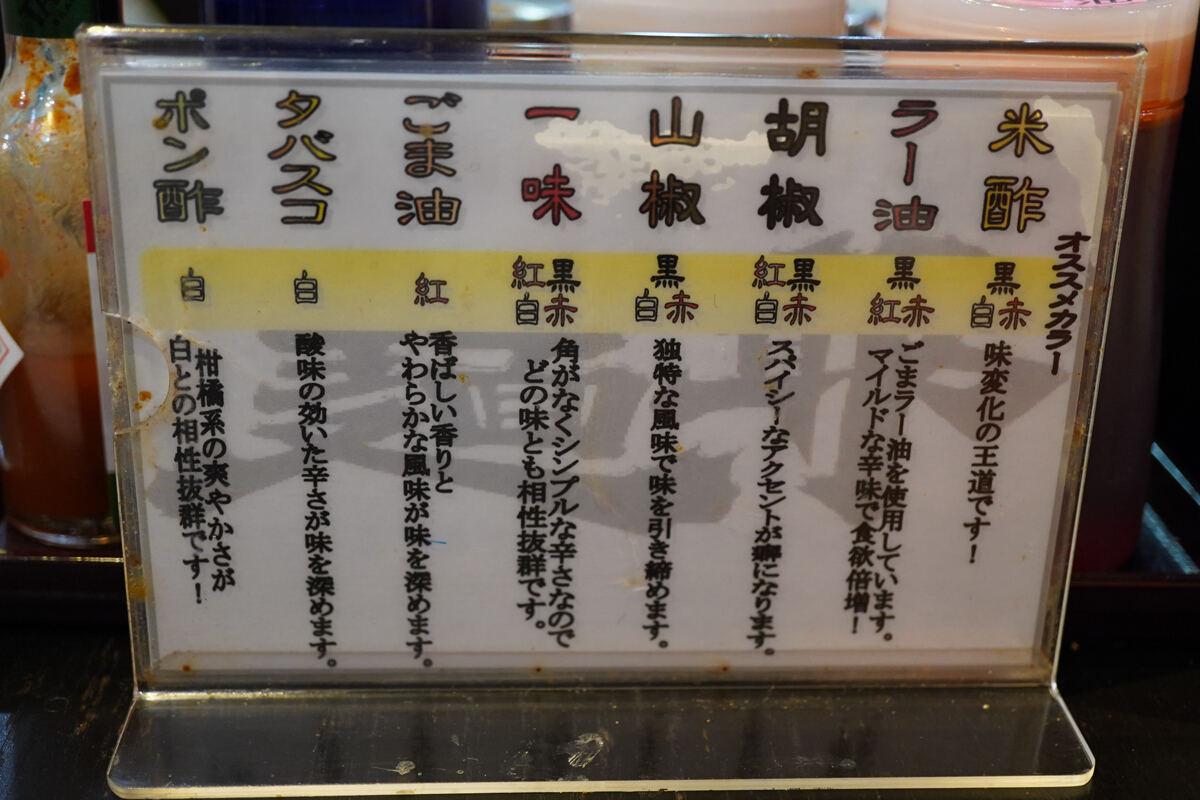 オススメカラー
米酢
黒
白赤
味変化の王道です！
ラー油
黒
紅赤
ごまラー油を使用しています。
マイルドな辛味で食欲倍増！
胡椒
紅黒
白赤
スパイシーなアクセントが癖になります。
山椒
黒
白赤
独特な風味で味を引き締めます。
一味
紅黒
白赤
角がなくシンプルな辛さなので
どの味とも相性抜群です。
ごま油
紅
香ばしい香りと
やわらかな風味が味を深めます。
タバスコ
白
酸味の効いた辛さが味を深めます。
ポン酢
白
柑橘系の爽やかさが
白との相性抜群です！